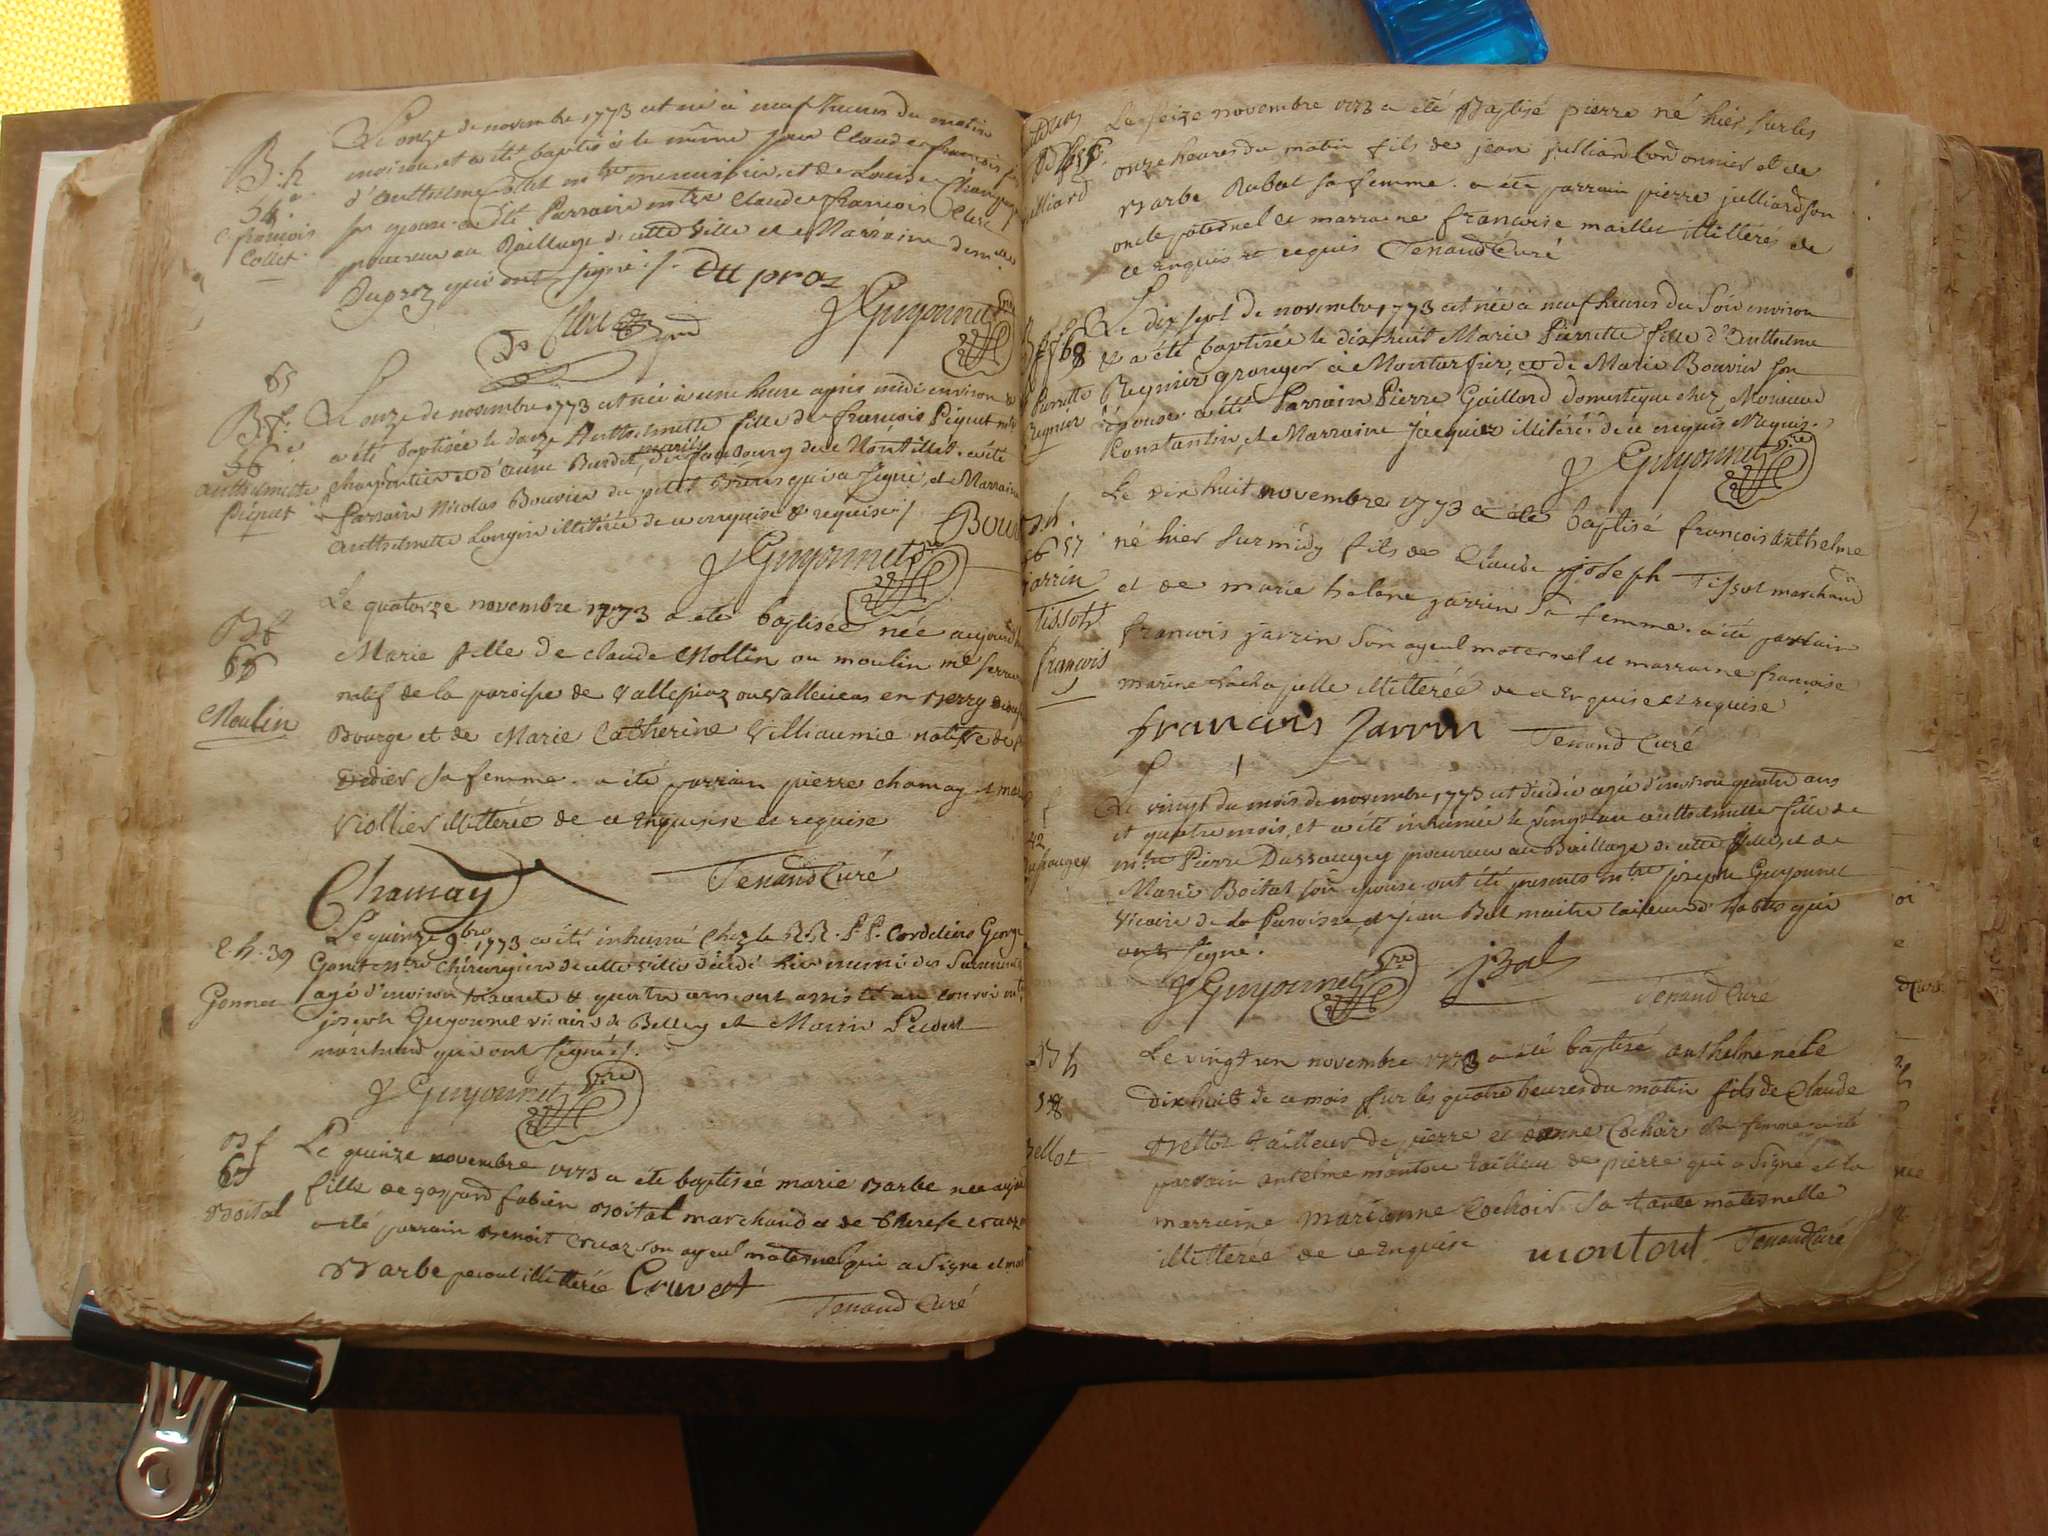 B. h
54e
C. françois
Collet
Le onze de novembre 1773 est né à neuf heures du matin
environ et a été baptisé le même jour Claude françois fils
d'Anthelme Collet mtre menuisier, et de Louise
son epouse a été Parrain mtre Claude françois Clerc
procureur au Bailliage de cette ville et Marraine demlle
Duproz qui ont signé /. Du proz
Clerc
J Guyonnet vre
65
B. f.
56e
anthelmette
Piquet
L'onze de novembre 1773 est née à une heure après midi environ et
a été baptisée le douze Anthelmette fille de françois Piquet mtre
charpentier et d'anne Burdet, mariés du faubourg de a été
Parrain Nicolas Bouvier du petit qui a signé, et Marraine
anthelmette Longin illitérée de ce enquise & requise /.
Bouv
J Guyonnet vre
B f
66
Moulin
Le quatorze novembre 1773 a été baptisée née aujourd'h
Marie fille de claude Mollin ou moulin me
natif de la paroisse de ou en Berry
Bourge et de Marie Catherine Villiaumie native de
Didier sa femme. a été parrain pierre chamay et mar
Viollier illitérée de ce enquise et requise
Chamay Tenand Curé
C. h. 39
Gonnet
Le quinze 9bre 1773 a été inhumé chez le R.R. P.P. Cordeliers George
Gonet mtre Chirurgien de cette ville décédé hier muni des Sacrements
agé d'environ soixante & quatre ans ont assisté au convoi mtre
joseph Guyonnet vicaire de Belley et Martin
marchand qui ont signés /.
J Guyonnet vre
B f
67
Boital
Le quinze novembre 1773 a été baptisée marie Barbe née aujourd
fille de gaspard fabien Boital marchand et de therese cruaz
a été parrain Benoit cruaz son ayeul maternel qui a signé et mar
Barbe illitterée Cruvat
Tenand Curé
B h 55
julliard
Le seize novembre 1773 a été Baptisé pierre né hier sur les
onze heures du matin fils de jean julliard cordonnier et de
Barbe Rubat sa femme. a été parrain pierre julliard son
oncle paternel et marraine françoise maillet illitérés de
ce enquis et requis Tenand Curé
B f 68
Pierrette
Regnier
Le dix sept de novembre 1773 est née à neuf heures du soir environ
& a été baptisée le dix huit Marie Pierrette fille d'Anthelme
Regnier granger à Montarfier, et de Marie Bouvier son
épouse a été Parrain Pierre Gaillard domestique chez Monsieur
Constantin, et Marraine Jacquier illitérés de ce enquis & requis.
J Guyonnet vre
B h
57
jarrin
Tissot
françois
Le dix huit novembre 1773 a été baptisé françois anthelme
né hier sur midy fils de Claude joseph Tissot marchand
et de marie helene jarrin sa femme. a été parrain
francois jarrin son ayeul maternel et marraine françoise
marine illitterée de ce enquise et requise
francois Jarrin Tenand Curé
42
Le vingt du mois de novembre 1773 est décédée agée d'environ quatre ans
et quatre mois, et a été inhumée le vingt un anthelmette fille de
mtre Pierre Dussaugey procureur au Bailliage de cette ville, et de
Marie Boital son epouse ont été presents mtre joseph Guyonnet
Vicaire de la Paroisse et jean Bal maitre tailleur d'habits qui
ont signé.
J Guyonnet vre jBal Tenand Curé
B h
58
Bellot
Le vingt un novembre 1773 a été baptisé anthelme né le
dix huit de ce mois sur les quatre heures du matin fils de Claude
Bellot tailleur de pierre et d'anne Cochoir sa femme a été
parrain antelme montou tailleur de pierre qui a signé et la
marraine marianne Cochoir sa tante maternelle
illitterée de ce enquise montout Tenand Curé